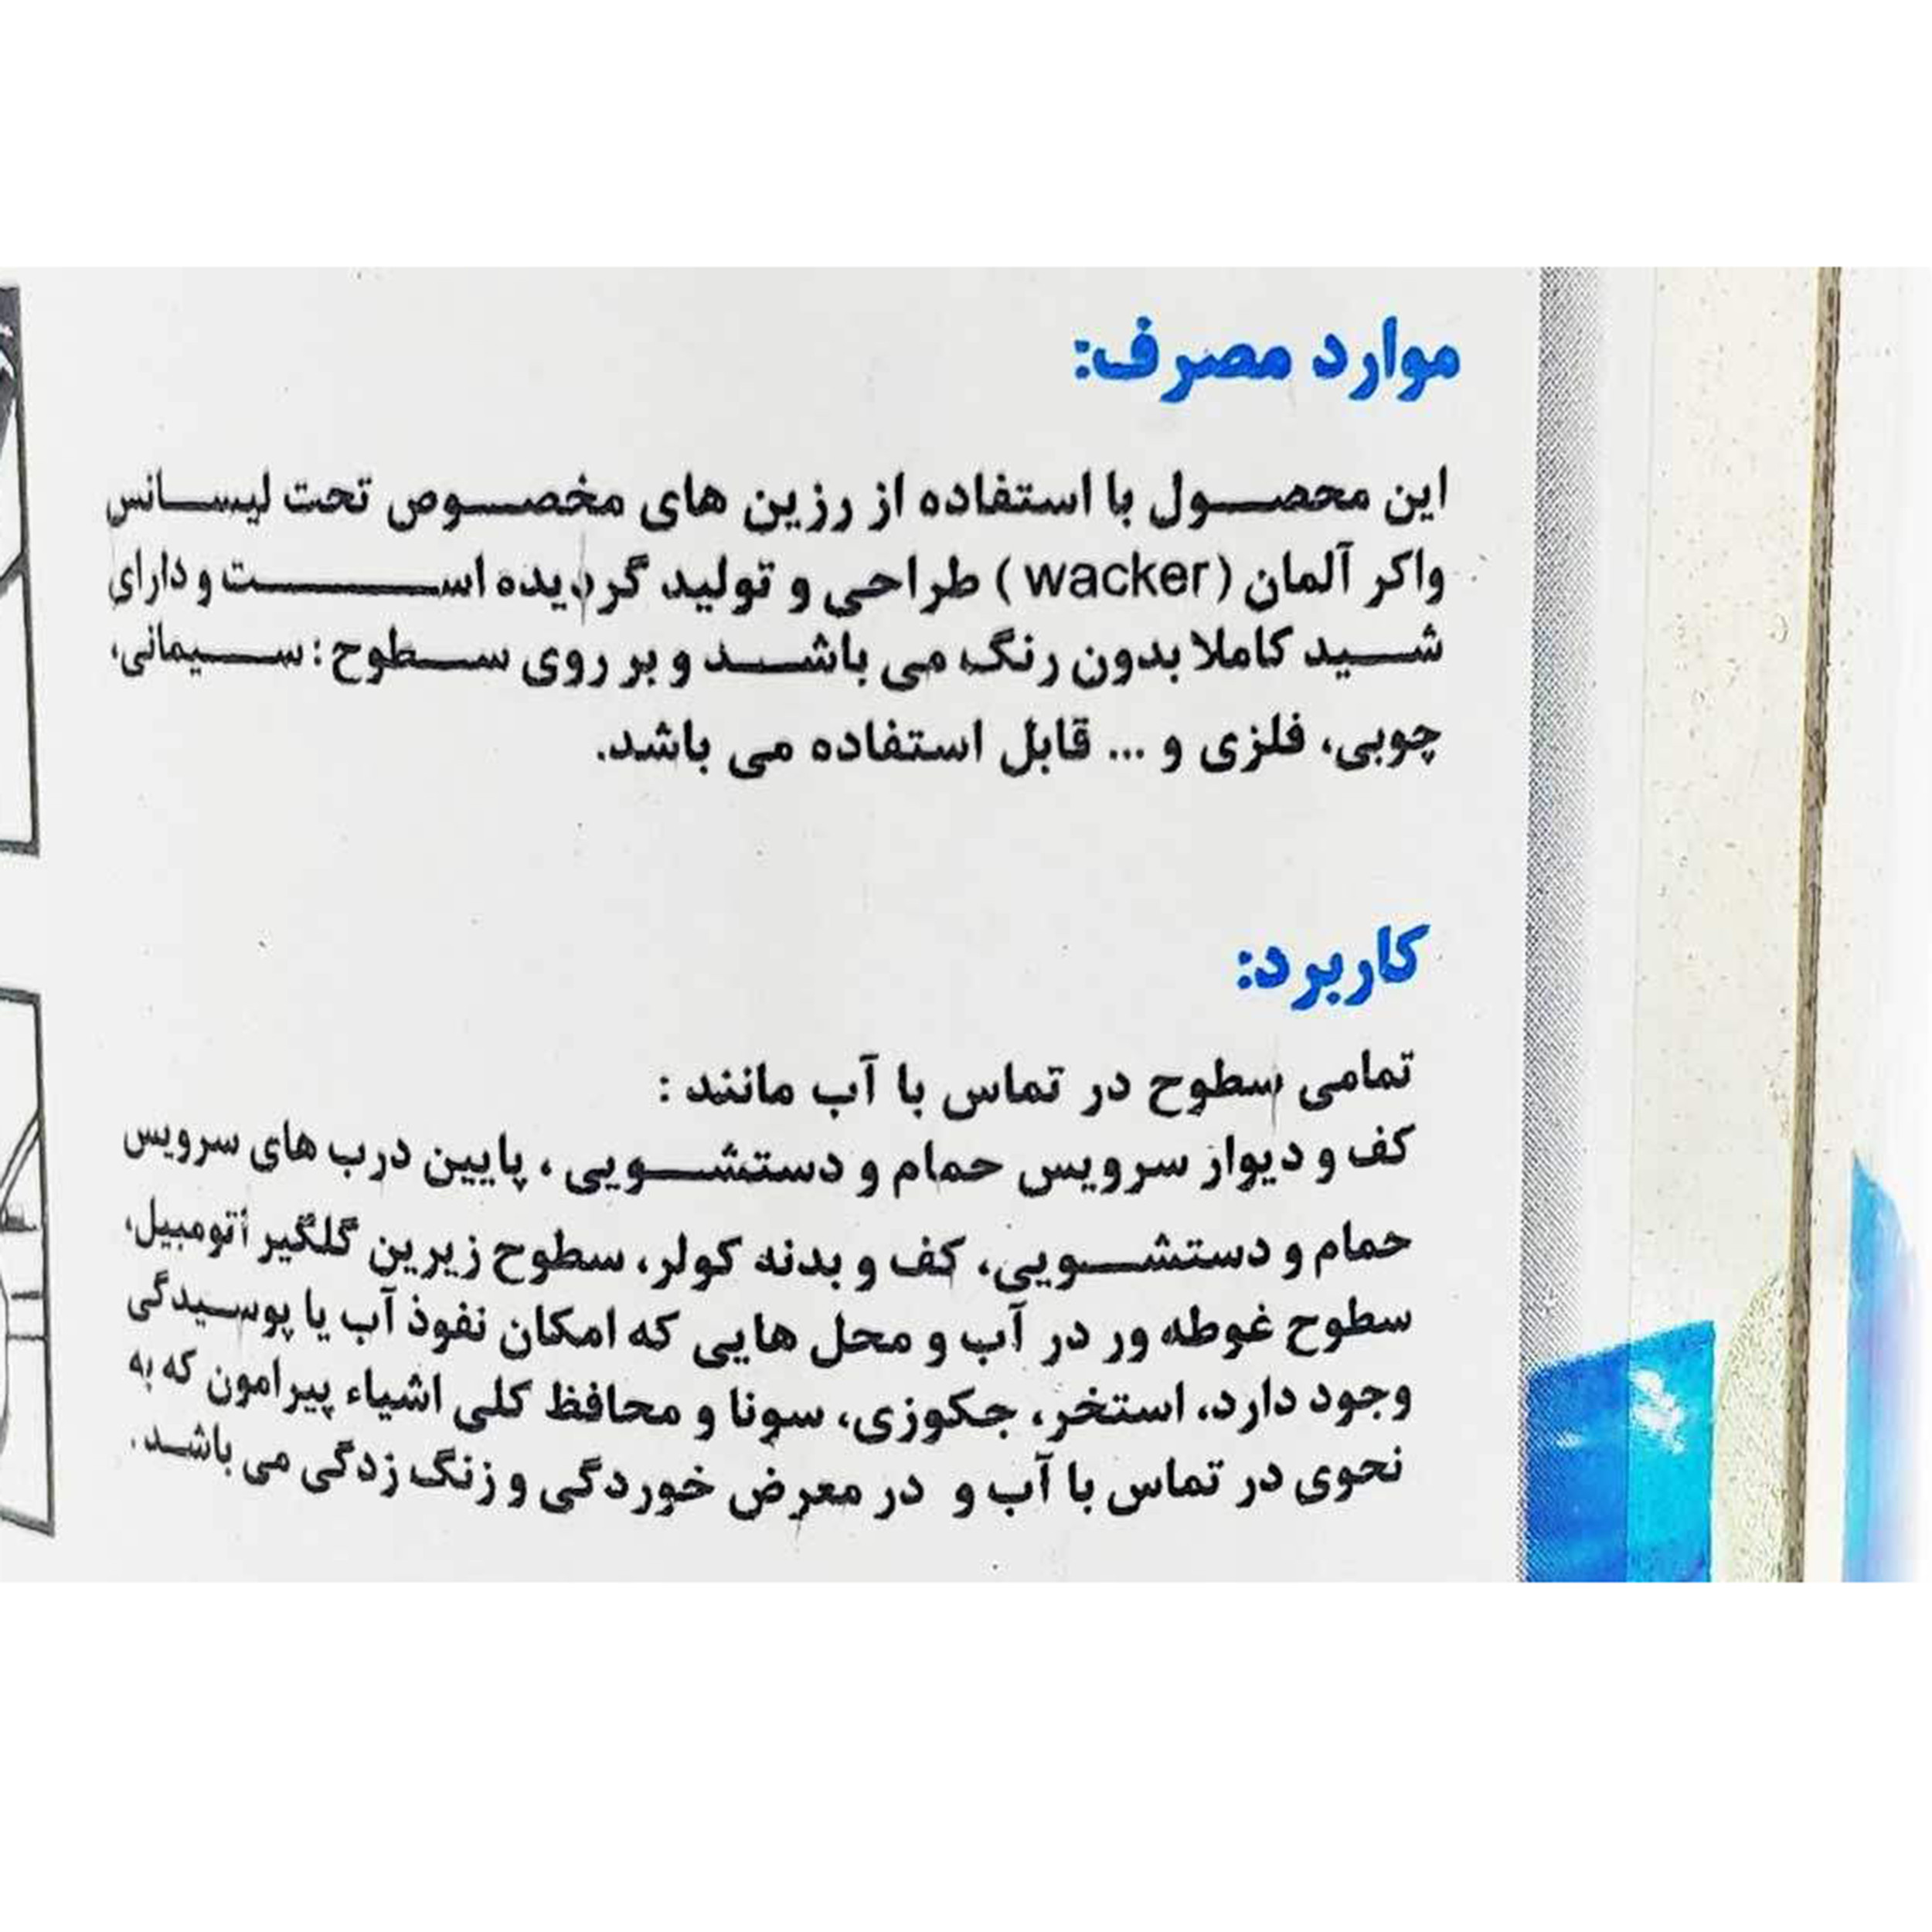 موارد مصرف:
این محصول با استفاده از رزین های مخصوص تحت لیسانس
واکر آلمان (wacker) طراحی و تولید گردیده است و دارای
شید کاملا بدون رنگ می باشد و بر روی سطوح: سیمانی،
چوبی، فلزی و ... قابل استفاده می باشد.
کاربرد:
تمامی سطوح در تماس با آب مانند :
کف و دیوار سرویس حمام و دستشویی ، پایین درب های سرویس
حمام و دستشویی، کف و بدنه کولر، سطوح زیرین گلگیر اتومبیل،
سطوح غوطه ور در آب و محل هایی که امکان نفوذ آب یا پوسیدگی
وجود دارد، استخر، جکوزی، سونا و محافظ کلی اشیاء پیرامون که به
نحوی در تماس با آب و در معرض خوردگی و زنگ زدگی می باشد.